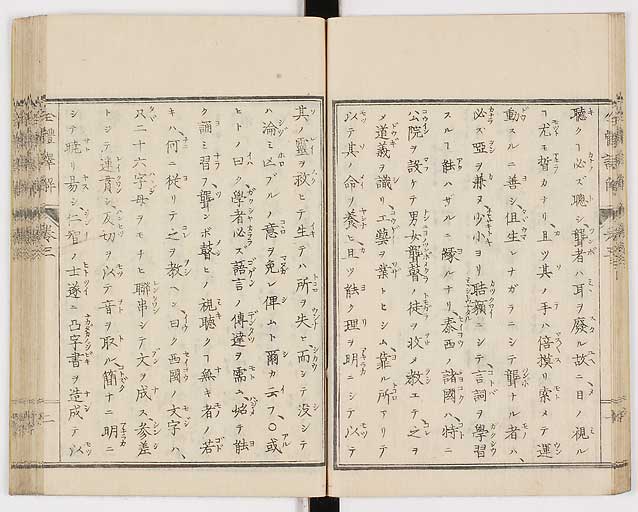 聽クヿ必ズ聰シ聾者ハ耳ヲ廢ル故ニ目ノ視ル
ヿ尤モ晳カナリ且ツ其ノ手ハ揣摸リ索メテ運
動スルニ善シ但生レナガラニシテ聾ナル者ハ、
必ズ啞ヲ兼ヌ少小ヨリ聒額ニシテ言詞ヲ學習
スルヿ能ハザルニ縁ルナリ、泰西ノ諸國ハ特ニ
公院ヲ設ケテ男女聾瞽ノ徒ヲ收メ教エテ之ヲ
メ道義ヲ識リ工藝ヲ業トヒシム靠ル所アリテ
以テ其ノ命ヲ養ヒ且ツ能ク理ヲ明ニシテ以テ
其ノ靈ヲ救ヒテ生テハ所ヲ失ヒ而シテ没シテ
ハ淪ミ凶ブルノ意ヲ免レ俾ムト爾カ云フ、○或
ヒトノ曰ク學者必ズ語言ノ傳達ヲ需ニ始テ能
ク誦ミ習フ聾ンボ瞽ヒノ視聽クヿ無キ者ノ若
キハ、何ニ從リテ之ヲ教ヘン曰ク西國ノ文字ハ、
只二十六字母ヲモチヒ聯串シテ文ヲ成ス參差
トシテ連貫シ反切ヲ以テ音ヲ取ル、簡ナニ明ニ
シテ曉リ易シ、仁智ノ士遂ニ凸字書ヲ造成テ以
全體新論譯解 卷三